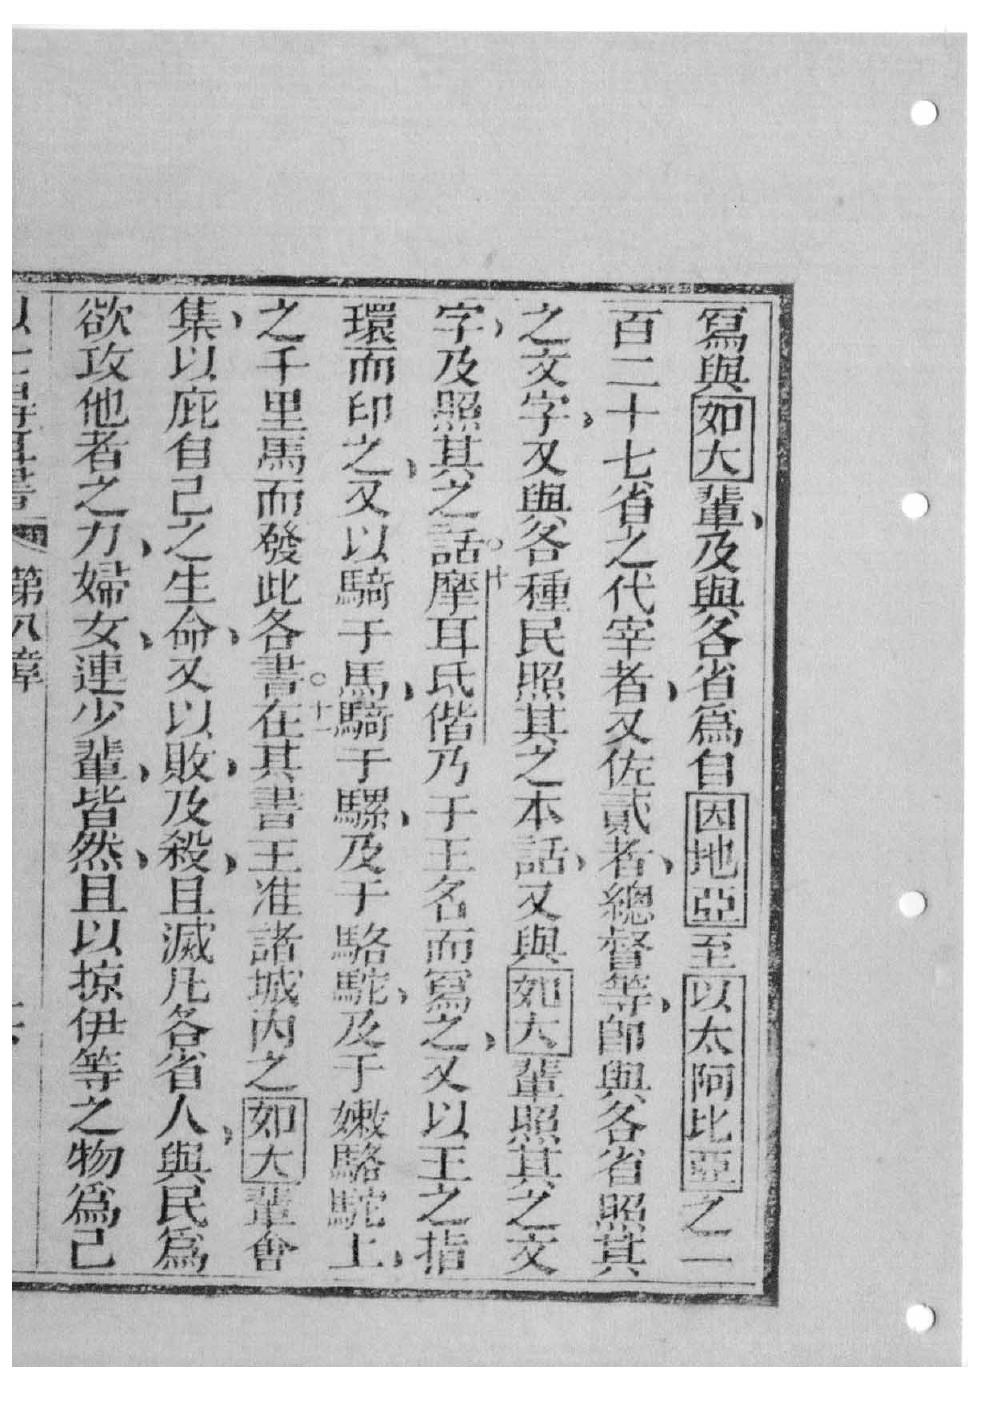 寫與如大輩、及與各省為自因地亞至以太阿比亞之一
百二十七省之代宰者、又佐貳者、總督等、即與各省照其
之文字、又與各種民照其之本話、又與如大輩照其之文
字、及照其之話○十摩耳氐偕乃于王名而寫之、又以王之指
環而印之、又以騎于馬、騎于騾、及于駱駝、及于嫩駱駝上、
之千里馬而發此各書○十一在其書王准諸城內之如大輩會
集、以庇自己之生命、又以敗、及殺、且滅凡各省人、與民為
欲攻他者之力、婦女、連少輩、皆然、且以掠伊等之物為己
以士得耳書 第八章